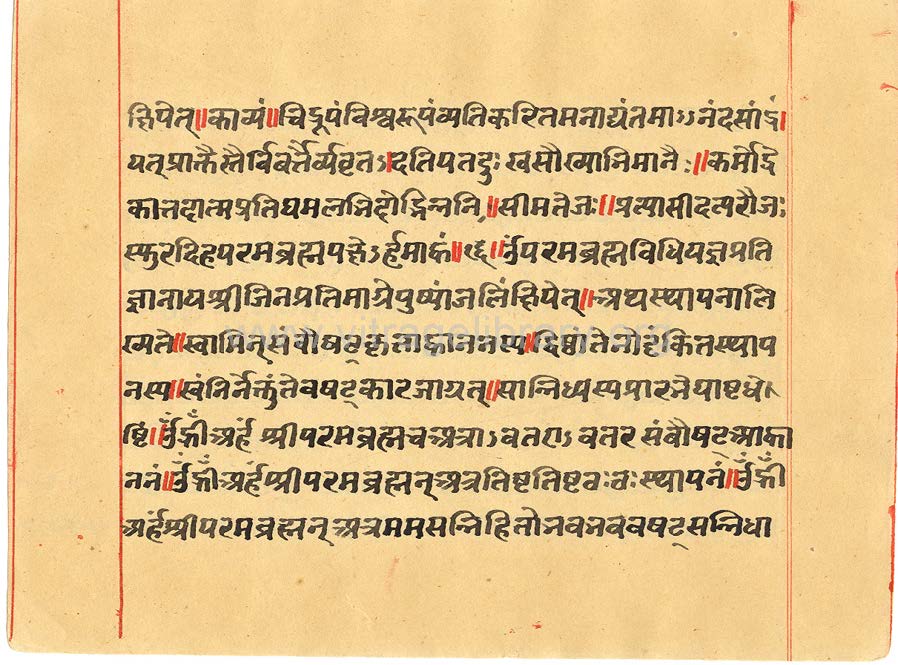 क्षिपेत्॥काव्यं॥चिद्रूपंविश्वरूपंव्यतिकरितमनाद्यंतमाऽऽनंदसांद्रं।
यत्प्राक्तैस्तैर्विवर्त्तैर्व्यवृतऽ।दतिपतद्दुःखसौख्यानिमानैः॥कर्मोद्रे
कात्तदात्मप्रतिघमलनिहोद्भिन्ननि॥सीमतेजः॥प्रत्यासीदत्परौजः
स्फुरदिहपरमब्रह्मपक्षेऽर्हमाह्वं॥६॥ॐपरमब्रह्मविधियज्ञप्रति
ज्ञानायश्रीजिनप्रतिमाग्रेपुष्पांजलिंक्षिपेत्॥अथस्थापनालि
ख्यते॥स्वामिन्संवौषट्कृताह्वाननस्य॥द्विष्टांतेनोट्टंकितस्थाप
नस्य॥स्वंनिर्नेक्तुंतेवषट्कारजाग्रत्॥सान्निध्यस्यप्रारभेयाष्टधे
ष्टिं॥ॐह्रीँअर्हं श्रीपरमब्रह्मचअत्राऽवतराऽवतर संवौषट्आह्वा
ननं॥ॐह्रीँअर्हंश्रीपरमब्रह्मन्अत्रतिष्टतिष्टठःठःस्थापनं॥ॐह्रीँ
अर्हंश्रीपरमब्रह्मन्अत्रममसन्निहितोभवभववषट्सन्निधा
www.vitragelibrary.org